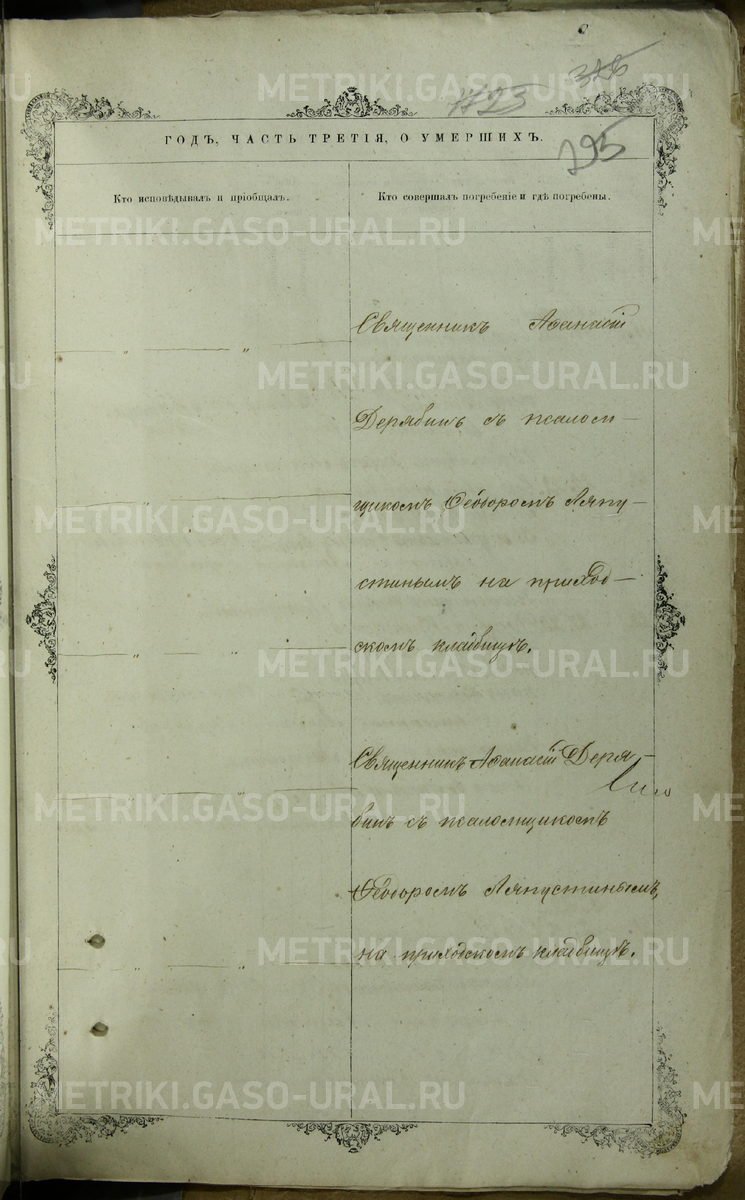 1723
295
ГОДЪ, ЧАСТЬ ТРЕТІЯ, О УМЕРШИХЪ.
Кто исповѣдывалъ и пріобщалъ.
Кто совершалъ погребеніе и гдѣ погребены.
Священникъ Аѳанасій
Дерябинъ съ псалом-
щикомъ Ѳеодоромъ Ляпу-
стинымъ на приход-
скомъ кладбищѣ.
Священникъ Аѳанасій Деря-
бинъ съ псаломщикомъ
Ѳеодоромъ Ляпустинымъ,
на приходскомъ кладбищѣ.
METRIKI.GASO-URAL.RU